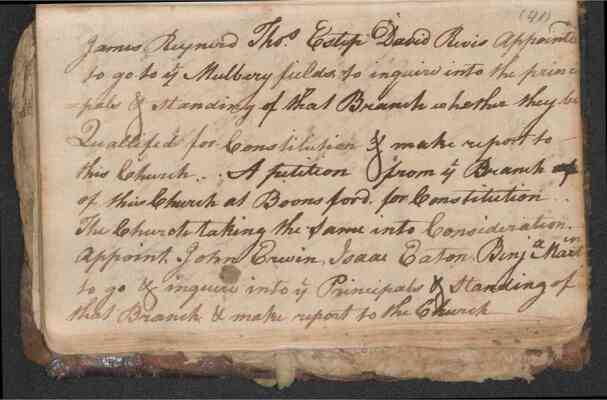 (41)
James Reynerd Tho.s Estep David Rivis Appointe
to go to ye Mulbery fields to inquire into the prince
=pals & Standing of that Branch whether they be
Quallifed for Constitution & make report to
this Church.. A petition from ye Branch of
of this Church at Boonsford. for Constitution
The Church taking the Same into Consideration.
Appoint. John Erwin, Isaac Eaton. Benja Mart in
to go & inquire into ye Principals & Standing of
that Branch & make report to the Church